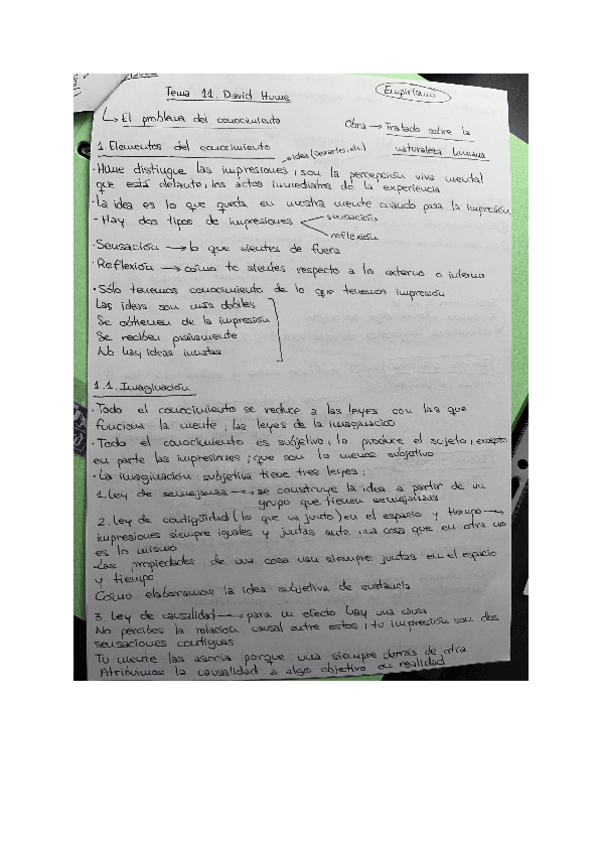 Tema 11. David Hume
Empirismo
↳ El problema del conocimiento
Obra → Tratado sobre la
naturaleza humana
1. Elementos del conocimiento
idea (Descartes, etc)
· Hume distingue las impresiones, son la percepción viva mental
que está delante, los actos inmediatos de la experiencia
· La idea es lo que queda en nuestra mente cuando pasa la impresión
- Hay dos tipos de impresiones
sensación
reflexión
· Sensación → lo que sientes de fuera
· Reflexión → cómo te sientes respecto a lo externo o interno
· Sólo tenemos conocimiento de lo que tenemos impresión
Las ideas son más débiles
Se obtienen de la impresión
Se reciben pasivamente
No hay ideas innatas
1.1. Imaginación
· Todo el conocimiento se reduce a las leyes con las que
funciona la mente, las leyes de la imaginación
· Todo el conocimiento es subjetivo, lo produce el sujeto, excepto
en parte las impresiones, que son lo menos subjetivo
· La imaginación subjetiva tiene tres leyes:
1. Ley de semejanza → se construye la idea a partir de un
grupo que tienen semejanzas
2. Ley de contigüidad (lo que va junto) en el espacio y tiempo →
impresiones siempre iguales y juntas ante una cosa que en otra no
es lo mismo
· Las propiedades de una cosa van siempre juntas en el espacio
y tiempo
Cómo elaboramos la idea subjetiva de sustancia
3. Ley de causalidad → para un efecto hay una causa
No percibes la relación causal entre estos, tu impresión son dos
sensaciones contiguas
Tu mente las asocia porque una siempre detrás de otra
Atribuimos la causalidad a algo objetivo en realidad